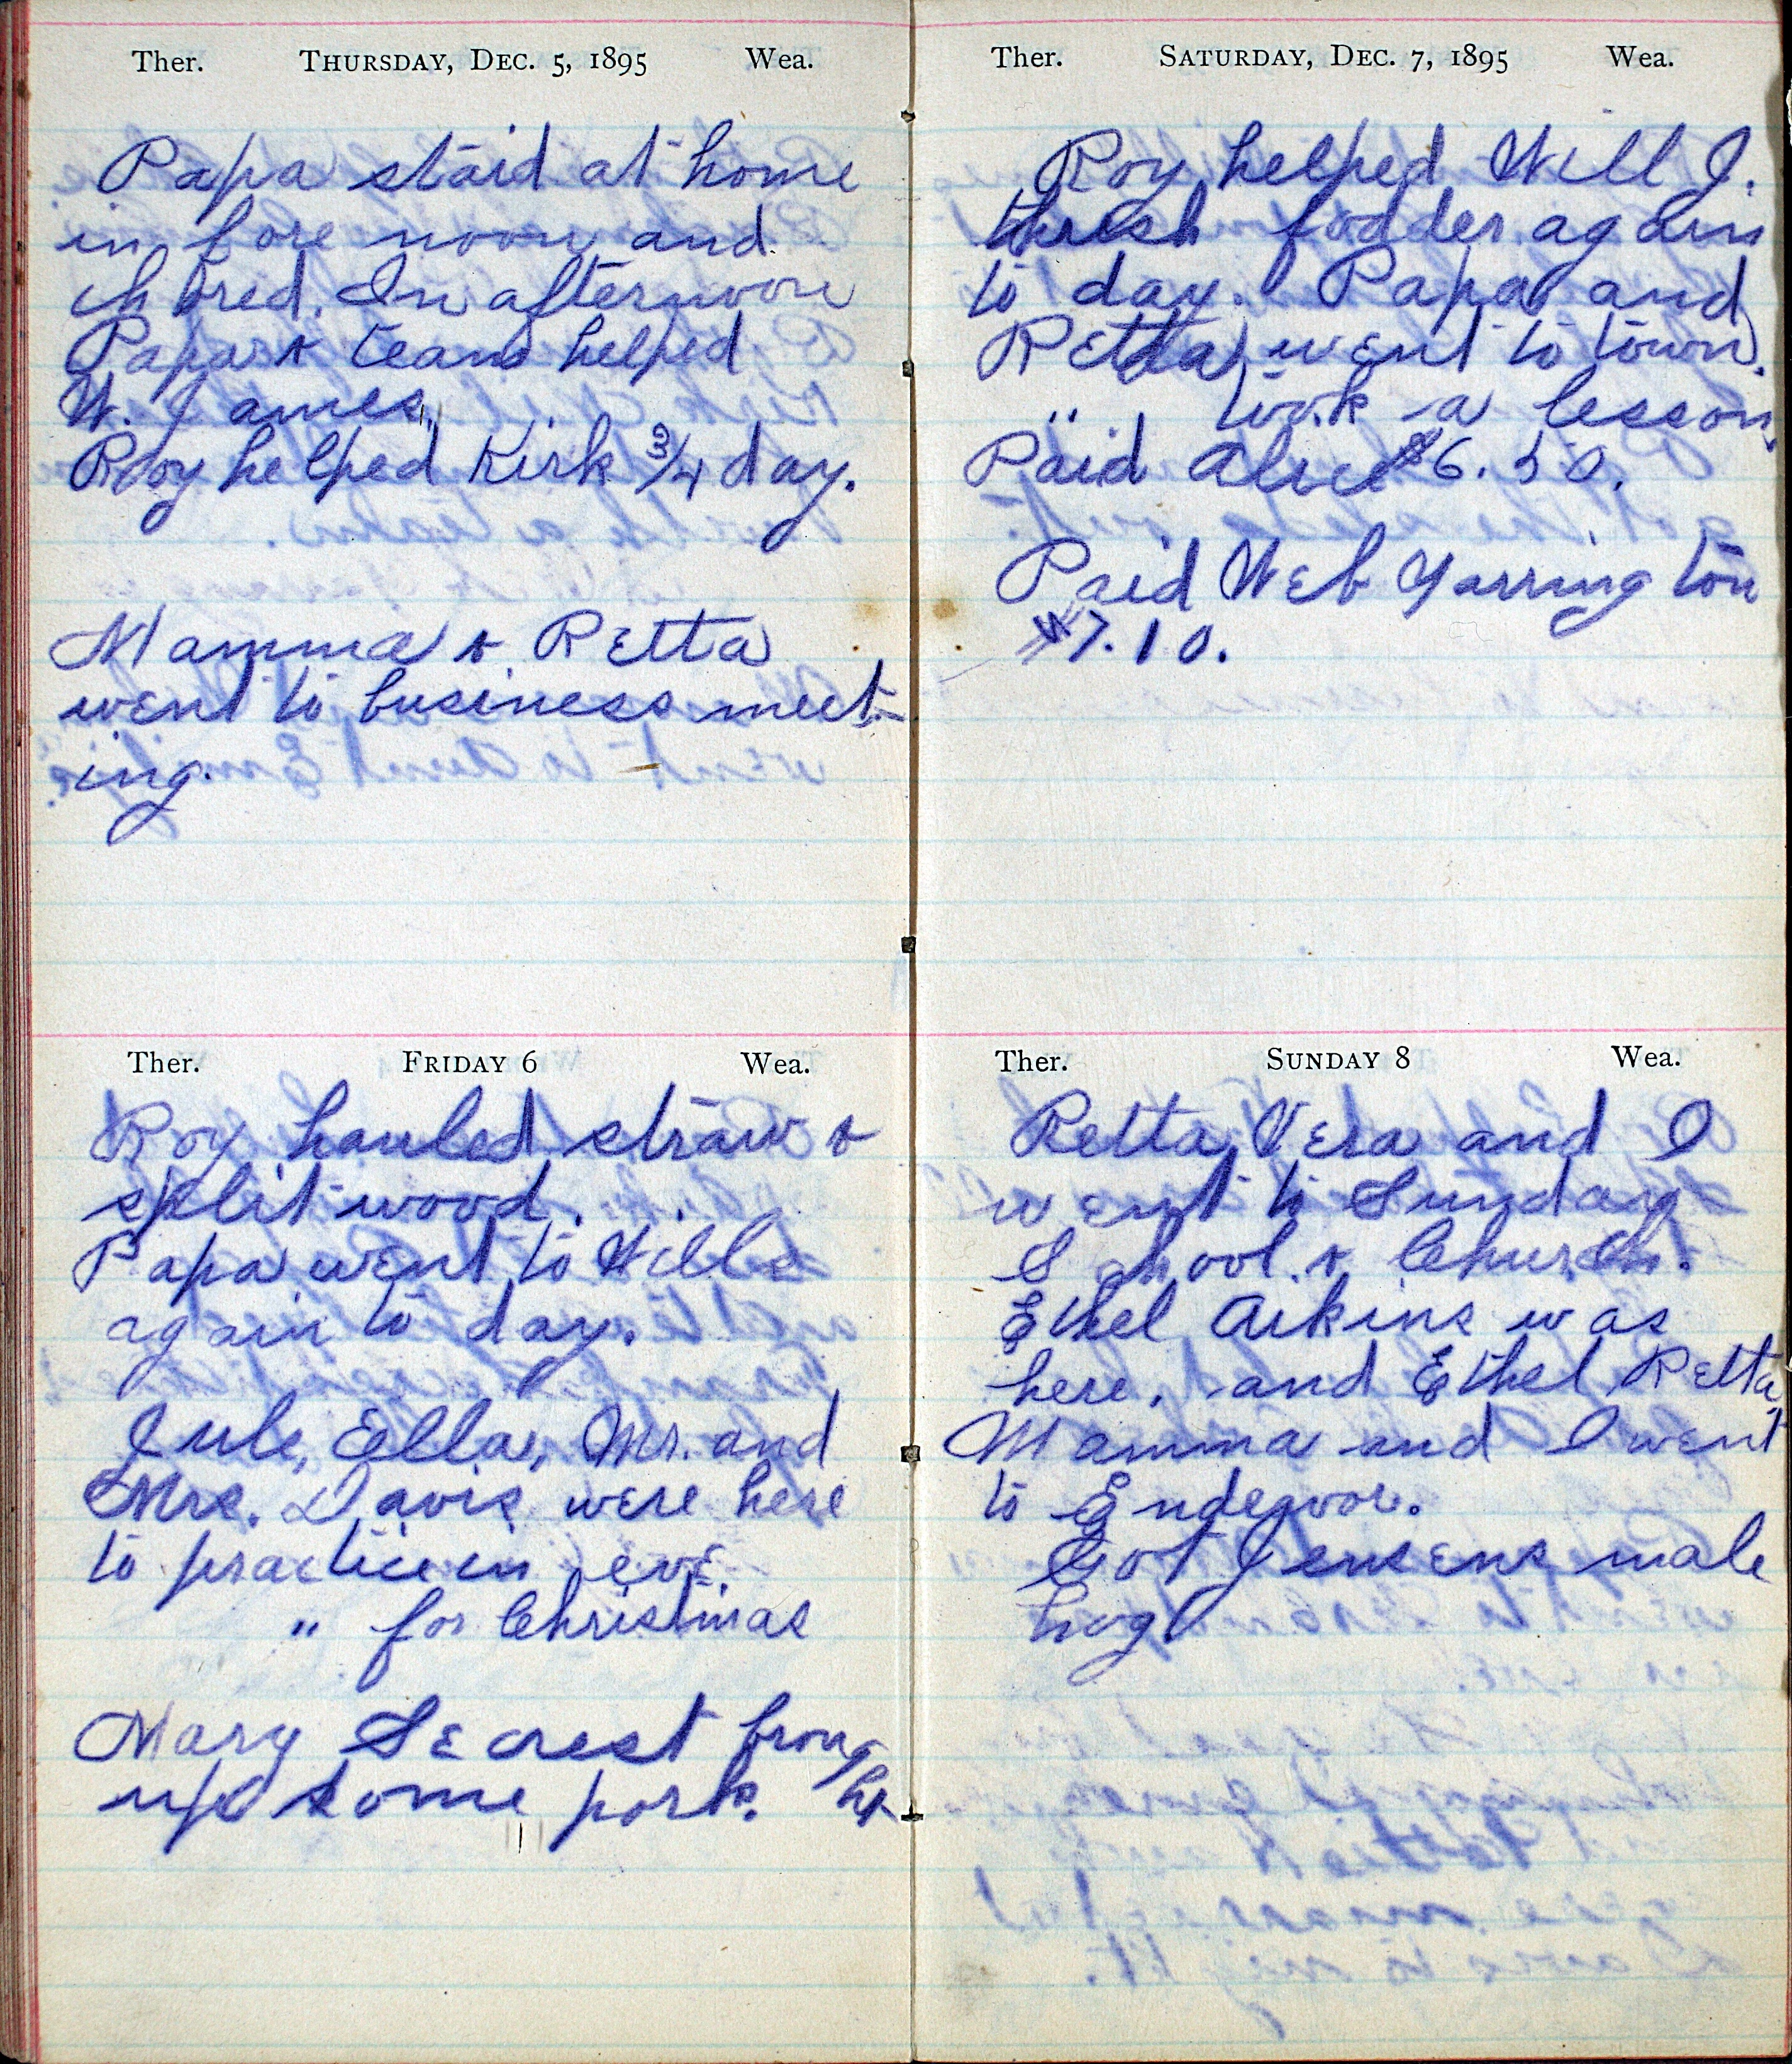 Ther. THURSDAY, DEC. 5, 1895 Wea.
Papa staid at home
in fore noon and
chored. In afternoon
Papa & team helped
W. James.
Roy helped Kirk 3/4 day.
Mamma & Retta
went to business meet-
ing.
Ther. FRIDAY 6 Wea.
Roy hauled straw &
split wood.
Papa went to Wills
again to day.
Jule, Ella, Mr. and
Mrs. Davis were here
to practice in eve.
" for Christmas
Mary Secrest broug
ht
up some pork.
Ther. SATURDAY, DEC. 7, 1895 Wea.
Roy helped Will J.
thresh fodder again
to day. Papa and
Retta went to town.
" took a lesson.
Paid Alice $6.50.
Paid Web Yarrington
$7.10.
Ther. SUNDAY 8 Wea.
Retta, Vera and I
went to Sunday
School & Church.
Ethel Aikins was
here. and Ethel, Retta,
Mamma and I went
to Endeavor.
Got Jensens male
hog